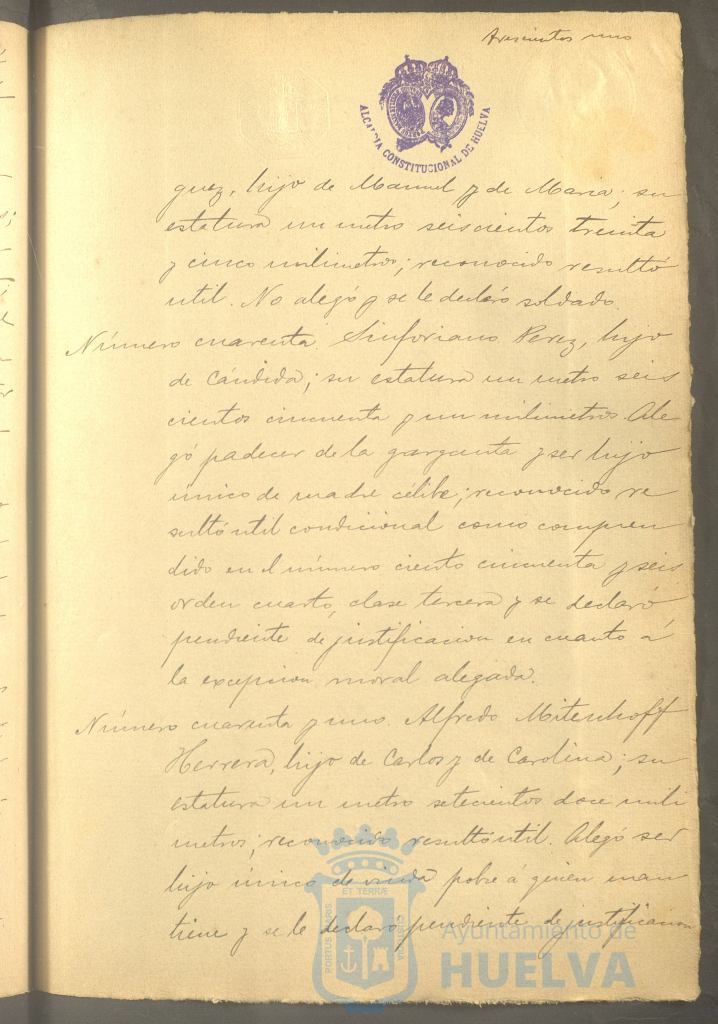 Trescientos uno
ALCALDIA CONSTITUCIONAL DE HUELVA
guez, hijo de Manuel y de Maria; su
estatura un metro seiscientos treinta
y cinco milimetros; reconocido resultó
util. No alegó y se le declaró soldado.
Número cuarenta. Sinforiano Perez, hijo
de Cándida; su estatura un metro seis
cientos cincuenta y un milimetros. Ale
gó padecer de la garganta y ser hijo
único de madre célibe; reconocido re
sultó util condicional como compren
dido en el número ciento cincuenta y seis
orden cuarto, clase tercera y se declaró
pendiente de justificacion en cuanto á
la excepcion moral alegada.
Número cuarenta y uno. Alfredo Mitenhoff
Herrera, hijo de Carlos y de Carolina; su
estatura un metro setecientos doce mili
metros; reconocido resultó util. Alegó ser
hijo único de viuda pobre á quien man
tiene y se le declaró pendiente de justificacion
PORTUS MARIS ET TERRÆ CUSTODIA
Ayuntamiento de
HUELVA